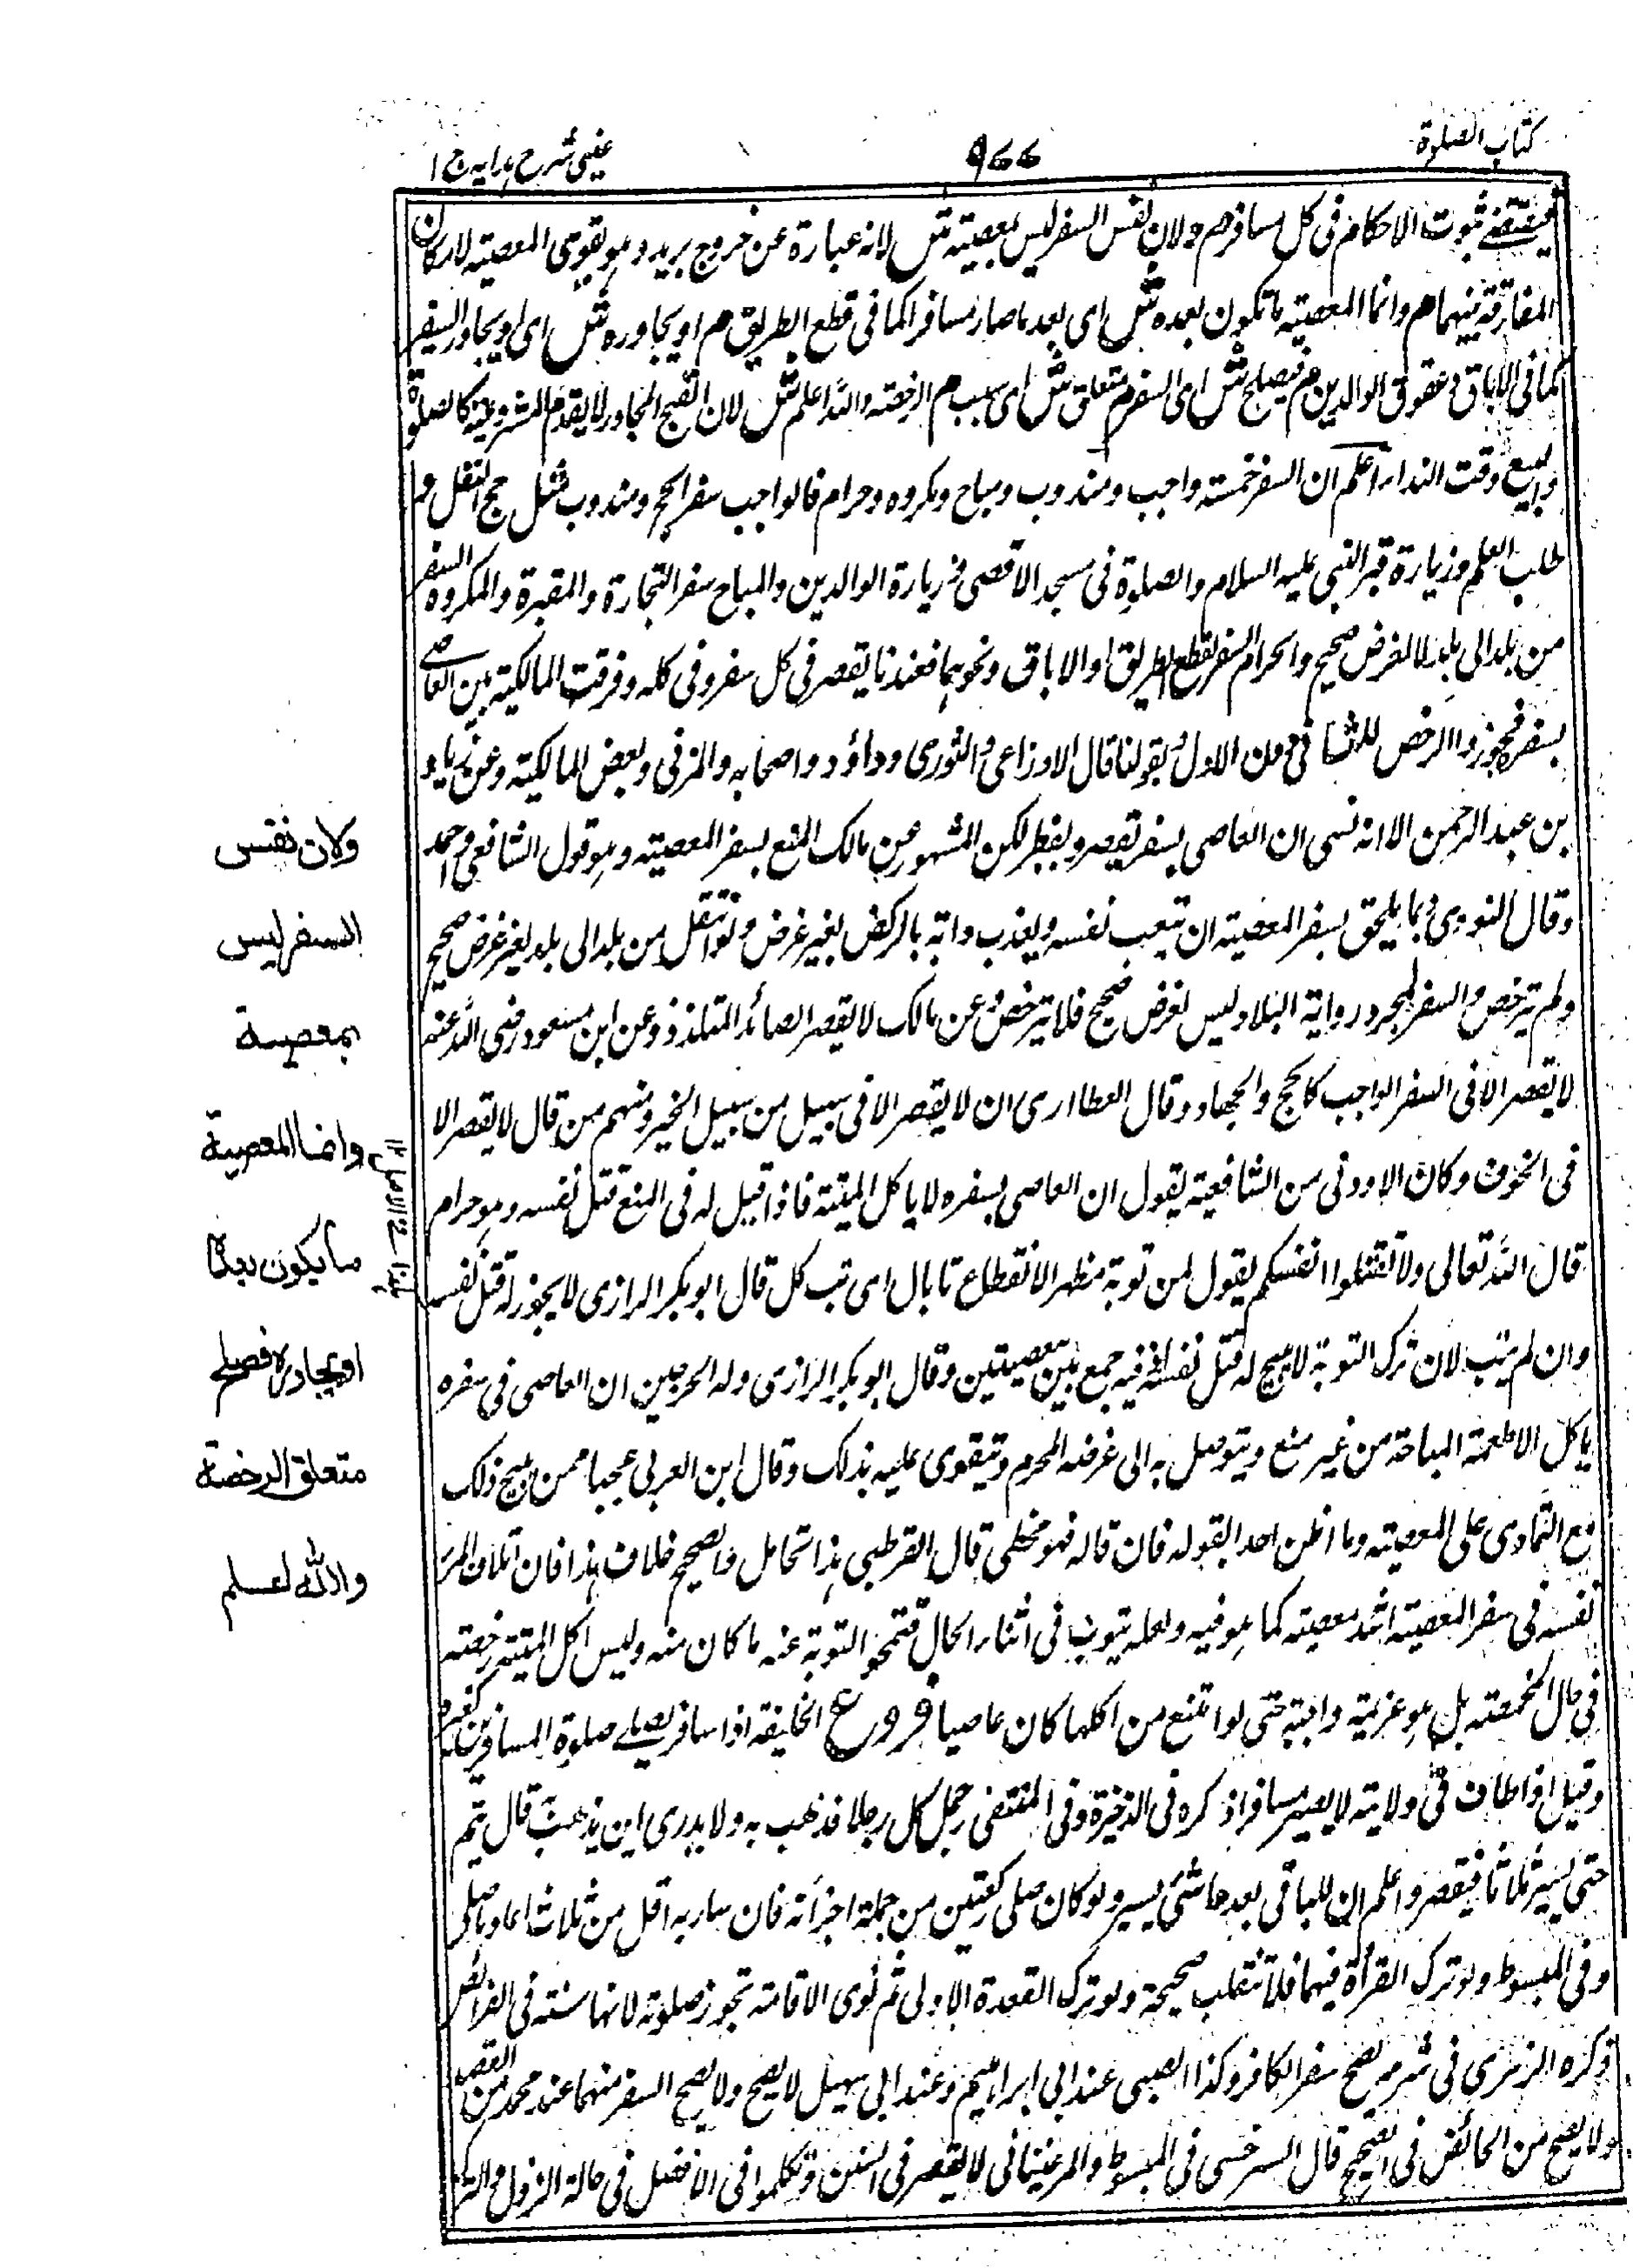 كتاب الصلوة
٩٦٦
عينى شرح هدايه ج ١
فيقتضے ثبوت الاحكام فى كل مسافر م ولان نفس السفر ليس بمعصيته ش لانه عبارة عن خروج بريد وهو يقوى المعصيته لامكان
المفارقة بينهما م وانما المعصيته ما تكون بعده ش اى بعد ما صار مسافرا كما فى قطع الطريق م او يجاوره ش اى او يجاور السفر
كما فى الاباق وعقوق الوالدين م فيصلح ش اى السفر م متعلق ش اى سبب م الرخصته والله اعلم ش لان القبح المجاور لا يقدم المشروعية كالصلوة
والبيع وقت النداء اعلم ان السفر خمسته واجب ومندوب ومباح ومكروه وحرام فالواجب سفر الحج ومندوب مثل حج النفل و
طلب العلم وزيارة قبر النبى عليه السلام والصلوة فى مسجد الاقصى وزيارة الوالدين والمباح سفر التجارة والمقبرة والمكروه السفر
من بلد الى بلد لا لغرض صحيح والحرام السفر لقطع الطريق او الاباق ونحوهما فعندنا يقصر فى كل سفر وفى كله وفرقت المالكيته بين العاصے
بسفر فجوزوا الرخص للثانى دون الاول وبقولنا قال الاوزاعى والثورى وداؤد واصحابه والمزنى وبعض المالكيته وعن زياد
بن عبد الرحمن الا انه نسى ان العاصى بسفر يقصر ويفطر لكن المشهور عن مالك المنع بسفر المعصيته وهو قول الشافعى واحمد
وقال النووى ومما يلحق بسفر المعصيته ان يتعب نفسه ويعذب دابة بالركض لغير غرض ولو انتقل من بلد الى بلد لغير غرض صحيح
ولم يترخص والسفر لمجرد رواية البلاد ليس لغرض صحيح فلا يترخص وعن مالك لا يقصر الصائد المتلذذ وعن ابن مسعود رضى الله عنه
لا يقصر الا فى السفر الواجب كالحج والجهاد وقال العطاارى ان لا يقصر الا فى سبيل من سبيل الخير ومنهم من قال لا يقصر الا
فى الخوف وكان الاودنى من الشافعيته يقول ان العاصى بسفره لا ياكل الميتة فاذا قيل له فى المنع قتل نفسه وهو حرام
قال الله تعالى ولا تقتلوا انفسكم يقول لمن توبة مظهر الانقطاع تا بال اى تب كل قال ابو بكر الرازى لا يجوز له قتل نفسه
وان لم يتب لان ترك التوبة لا يبيح له قتل نفسه ففيه جمع بين معصيتين وقال ابو بكر الرازى وله الحرجين ان العاصى فى سفره
ياكل الاطعمة المباحة من غير منع ويتوصل به الى غرضه المحرم ويتقوى عليه بذلك وقال ابن العربى عجبا ممن يبيح ذلك
مع التمادى على المعصيته وما اظن احدا يقوله فان قاله فهو مخطى قال القرطبى هذا تحامل والصحيح خلاف هذا فان اتلاف المرء
نفسه فى سفر المعصيته اشد معصيته كما هو فيه ولعله يتوب فى اثناء الحال فتمحو التوبة عنه ما كان منه وليس اكل الميتته رخصته
فى حال المخمصته بل هو عزيمة واجبة حتى لو امتنع من اكلها كان عاصيا فروع الخليفة اذا سافر يصلے صلوة المسافرين كغيره
وقيل اذا طاف فى ولايته لا يصير مسافرا ذكره فى الذخيرة وفى المنتقى رجل كل رجلا فذهب به ولا يدرى اين يذهب قال يتم
حتى يسير ثلاثا فيقصر واعلم ان للباقى بعدها شئ يسير ولو كان صلى ركعتين من جملة اجزأته فان سار به اقل من ثلاث اعاد ما صلى
وفى المبسوط ولو ترك القرأة فيهما فلا تنقلب صحيحة ولو ترك القعدة الاولى ثم نوى الاقامته تجوز صلوته لانها سنته فى الفرائض
ذكره الزندى فى شرحه يصح سفر الكافر وكذا الصبى عند ابى ابراهيم وعند ابى سهيل لا يصح ولا يصح السفر منهما عند محمد من القصر
ولا يصح من الحائض فى الصحيح قال السرخسى فى المبسوط والمرغينانى لا يقصر فى السنن وتكلموا فى الافضل فى حالة النزول والترك
ولان نفس
السفر ليس
بمعصية
وانما المعصية
ما يكون بعدہ
او يجاوره فصلح
متعلق الرخصة
والله اعلم